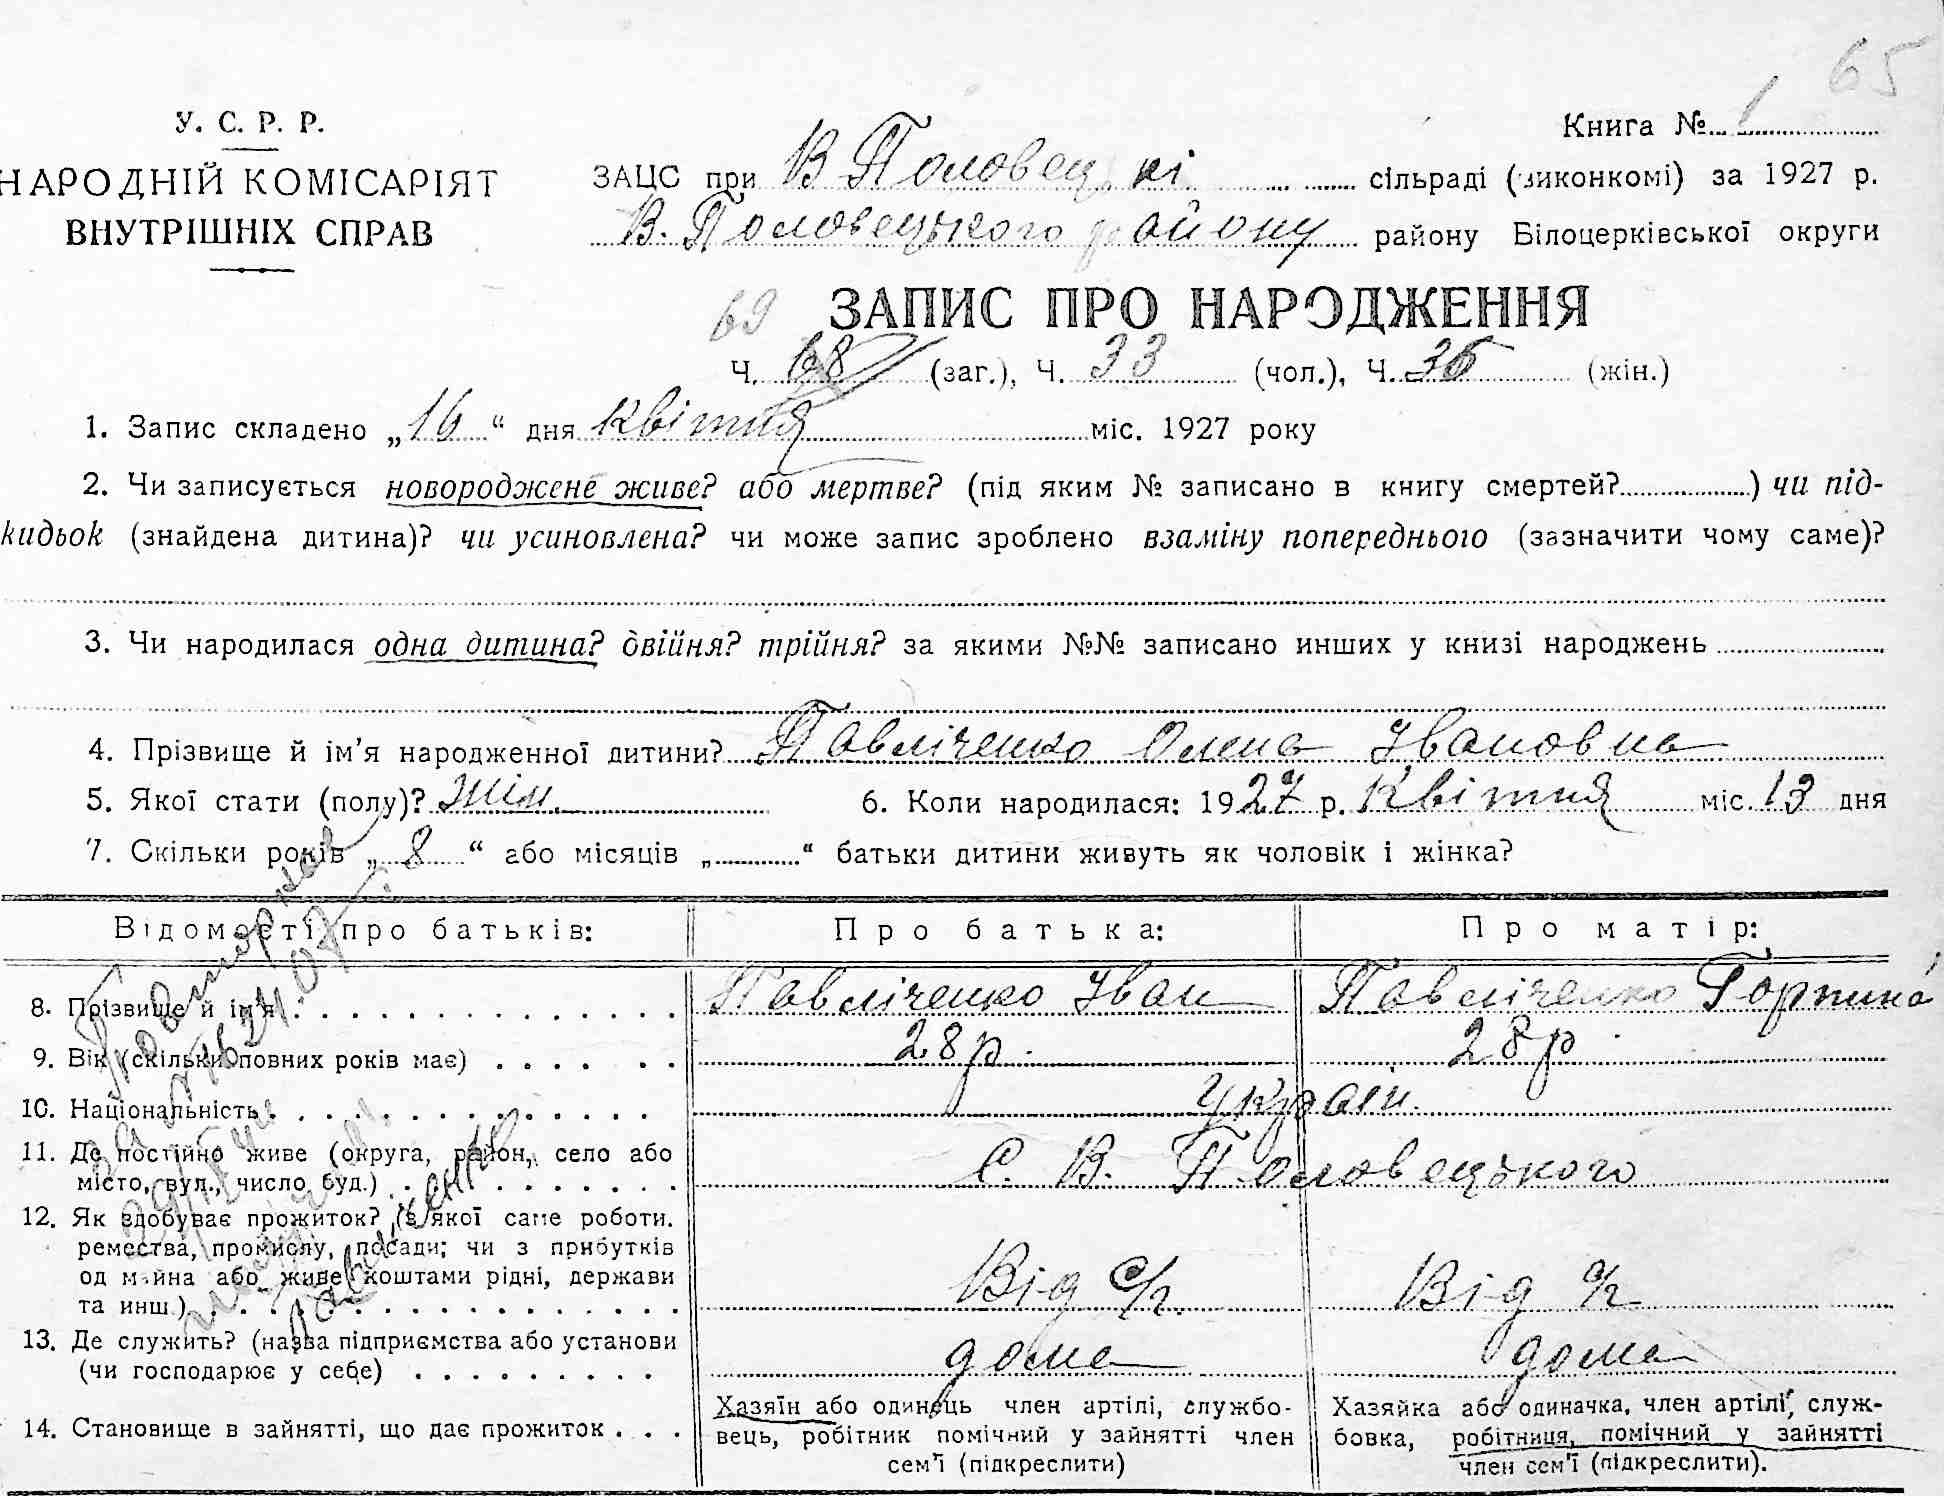 65
У. С. Р. Р.
НАРОДНІЙ КОМІСАРІЯТ
ВНУТРІШНІХ СПРАВ
Книга № 1
ЗАЦС при В Половецькі сільраді (виконкомі) за 1927 р.
В. Половецького району району Білоцерківської округи
ЗАПИС ПРО НАРОДЖЕННЯ
69
Ч. 68 (заг.), Ч. 33 (чол.), Ч. 36 (жін.)
1. Запис складено „16“ дня квітня міс. 1927 року
2. Чи записується новороджене живе? або мертве? (під яким № записано в книгу смертей?) чи під-
кидьок (знайдена дитина)? чи усиновлена? чи може запис зроблено взаміну попереднього (зазначити чому саме)?
3. Чи народилася одна дитина? двійня? трійня? за якими №№ записано инших у книзі народжень
4. Прізвище й ім'я народженної дитини? Павліченко Олена Івановна
5. Якої стати (полу)? жін. 6. Коли народилася: 1927 р. квітня міс. 13 дня
7. Скільки років „8“ або місяців „“ батьки дитини живуть як чоловік і жінка?
Відомості про батьків: Про батька: Про матір:
8. Прізвище й ім'я Павліченко Іван Павліченко Горпина
9. Вік (скільки повних років має) 28 р. 28 р
10. Національність українн.
11. Де постійно живе (округа, район, село або
місто, вул., число буд.) С. В. Половецького
12. Як здобуває прожиток? (з якої саме роботи.
ремества, промислу, посади; чи з прибутків
од майна або живе коштами рідні, держави
та инш.) Від с/г. Від с/г
13. Де служить? (назва підприємства або установи
(чи господарює у себе) дома дома
14. Становище в зайнятті, що дає прожиток
Хазяїн або одинець член артілі, службо-
вець, робітник помічний у зайнятті член
сем'ї (підкреслити)
Хазяйка або одиначка, член артілі, служ-
бовка, робітниця, помічний у зайнятті
член сем'ї (підкреслити).